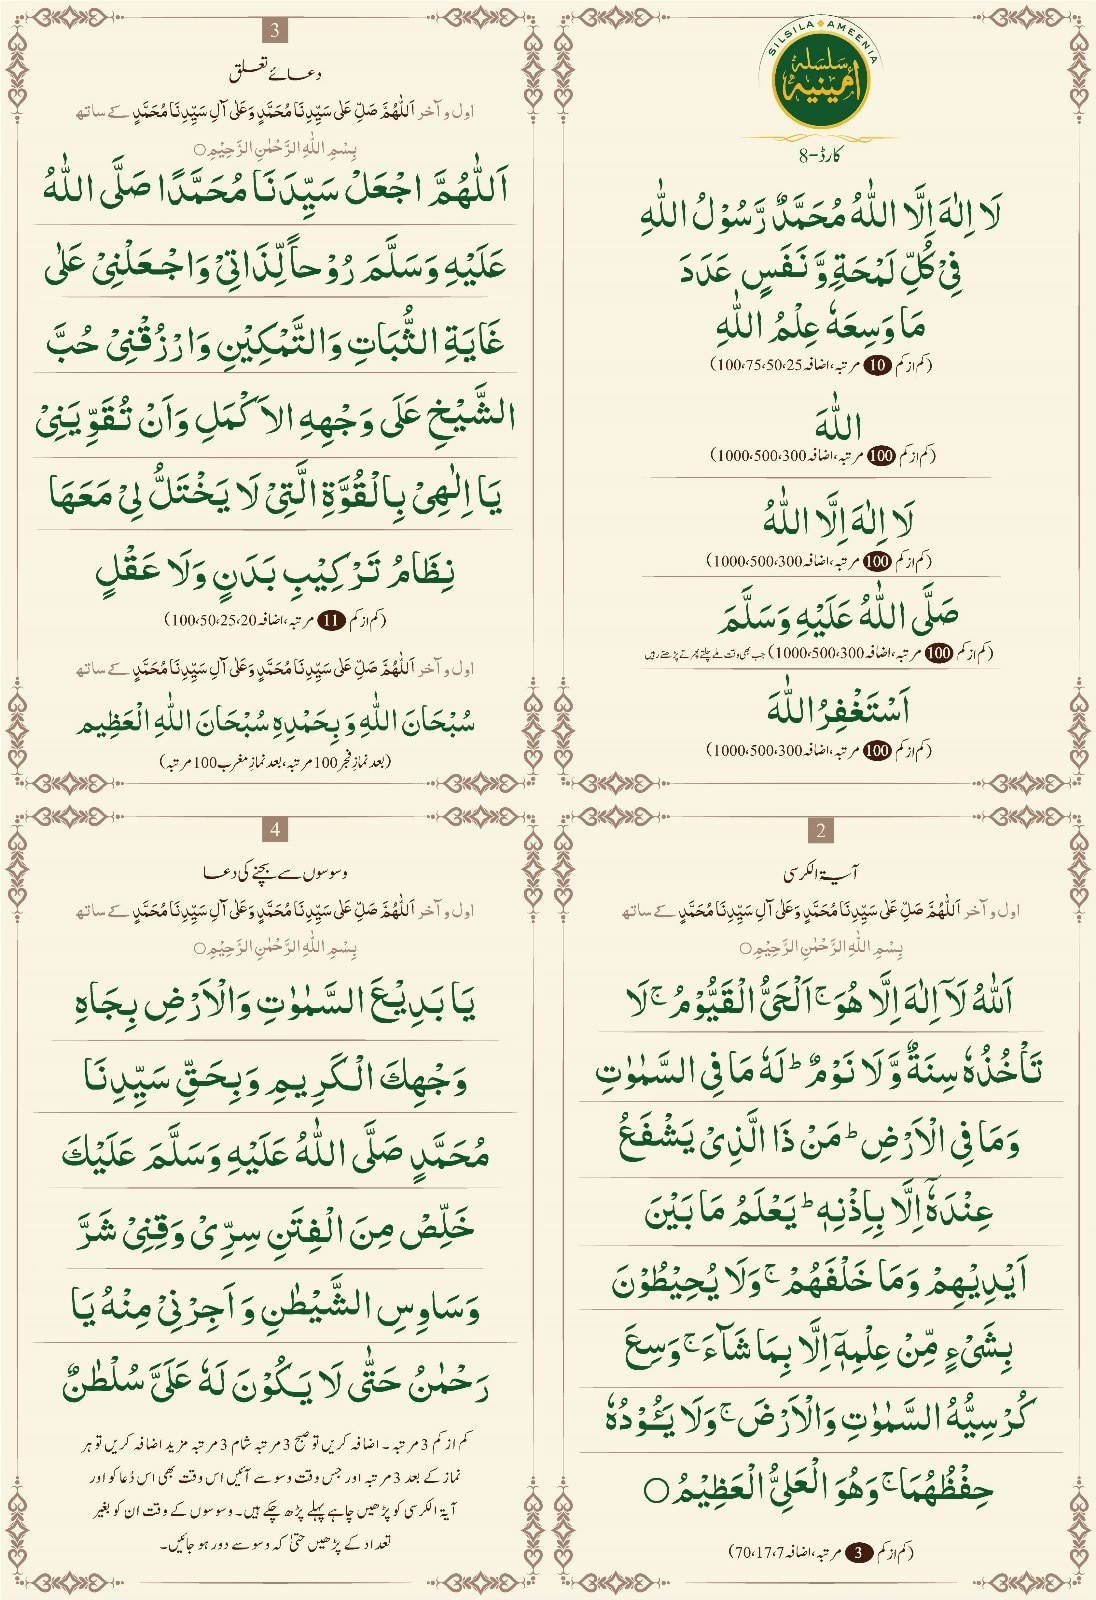 SILSILA AMEENIA
سلسلہ
امینیہ
کارڈ-8
لَا اِلٰهَ اِلَّا اللّٰهُ مُحَمَّدٌ رَّسُوْلُ اللّٰهِ
فِیْ كُلِّ لَمْحَةٍ وَّ نَفَسٍ عَدَدَ
مَا وَسِعَهٗ عِلْمُ اللّٰهِ
(کم از کم 10 مرتبہ، اضافہ 25،50،75،100)
اَللّٰهَ
(کم از کم 100 مرتبہ، اضافہ 300،500،1000)
لَا اِلٰهَ اِلَّا اللّٰهُ
(کم از کم 100 مرتبہ، اضافہ 300،500،1000)
صَلَّی اللّٰهُ عَلَیْهِ وَسَلَّمَ
(کم از کم 100 مرتبہ، اضافہ 300،500،1000) جب بھی وقت ملے چلتے پھرتے پڑھتے رہیں
اَسْتَغْفِرُ اللّٰهَ
(کم از کم 100 مرتبہ، اضافہ 300،500،1000)
2
آیۃ الکرسی
اول و آخر اَللّٰهُمَّ صَلِّ عَلٰی سَیِّدِنَا مُحَمَّدٍ وَعَلٰی آلِ سَیِّدِنَا مُحَمَّدٍ کے ساتھ
بِسْمِ اللّٰهِ الرَّحْمٰنِ الرَّحِیْمِ○
اَللّٰهُ لَاۤ اِلٰهَ اِلَّا هُوَ ۚ اَلْحَیُّ الْقَیُّوْمُ ۚ لَا
تَاْخُذُهٗ سِنَةٌ وَّلَا نَوْمٌ ؕ لَهٗ مَا فِی السَّمٰوٰتِ
وَمَا فِی الْاَرْضِ ؕ مَنْ ذَا الَّذِیْ یَشْفَعُ
عِنْدَهٗۤ اِلَّا بِاِذْنِهٖ ؕ یَعْلَمُ مَا بَیْنَ
اَیْدِیْهِمْ وَمَا خَلْفَهُمْ ۚ وَلَا یُحِیْطُوْنَ
بِشَیْءٍ مِّنْ عِلْمِهٖۤ اِلَّا بِمَا شَآءَ ۚ وَسِعَ
كُرْسِیُّهُ السَّمٰوٰتِ وَالْاَرْضَ ۚ وَلَا یَـُٔوْدُهٗ
حِفْظُهُمَا ۚ وَهُوَ الْعَلِیُّ الْعَظِیْمُ ○
(کم از کم 3 مرتبہ، اضافہ 7،17،70)
3
دعائے تعلق
اول و آخر اَللّٰهُمَّ صَلِّ عَلٰی سَیِّدِنَا مُحَمَّدٍ وَعَلٰی آلِ سَیِّدِنَا مُحَمَّدٍ کے ساتھ
بِسْمِ اللّٰهِ الرَّحْمٰنِ الرَّحِیْمِ○
اَللّٰهُمَّ اجْعَلْ سَیِّدَنَا مُحَمَّدًا صَلَّی اللّٰهُ
عَلَیْهِ وَسَلَّمَ رُوْحاً لِّذَاتِیْ وَاجْعَلْنِیْ عَلٰی
غَایَةِ الثُّبَاتِ وَالتَّمْكِیْنِ وَارْزُقْنِیْ حُبَّ
الشَّیْخِ عَلَی وَجْهِهِ الاَكْمَلِ وَاَنْ تُقَوِّیَنِیْ
یَا اِلٰهِیْ بِالْقُوَّةِ الَّتِیْ لَا یَخْتَلُّ لِیْ مَعَهَا
نِظَامُ تَرْكِیْبِ بَدَنٍ وَلَا عَقْلٍ
(کم از کم 11 مرتبہ، اضافہ 20،25،50،100)
اول و آخر اَللّٰهُمَّ صَلِّ عَلٰی سَیِّدِنَا مُحَمَّدٍ وَعَلٰی آلِ سَیِّدِنَا مُحَمَّدٍ کے ساتھ
سُبْحَانَ اللّٰهِ وَبِحَمْدِهٖ سُبْحَانَ اللّٰهِ الْعَظِیْمِ
(بعد نمازِ فجر 100 مرتبہ، بعد نمازِ مغرب 100 مرتبہ)
4
وسوسوں سے بچنے کی دعا
اول و آخر اَللّٰهُمَّ صَلِّ عَلٰی سَیِّدِنَا مُحَمَّدٍ وَعَلٰی آلِ سَیِّدِنَا مُحَمَّدٍ کے ساتھ
بِسْمِ اللّٰهِ الرَّحْمٰنِ الرَّحِیْمِ○
یَا بَدِیْعَ السَّمٰوٰتِ وَالْاَرْضِ بِجَاهِ
وَجْهِكَ الْكَرِیمِ وَبِحَقِّ سَیِّدِنَا
مُحَمَّدٍ صَلَّی اللّٰهُ عَلَیْهِ وَسَلَّمَ عَلَیْكَ
خَلِّصْ مِنَ الْفِتَنِ سِرِّیْ وَقِنِیْ شَرَّ
وَسَاوِسِ الشَّیْطٰنِ وَاَجِرْنِیْ مِنْهُ یَا
رَحْمٰنُ حَتّٰی لَا یَكُوْنَ لَهٗ عَلَیَّ سُلْطٰنٌ
کم از کم 3 مرتبہ۔ اضافہ کریں تو صبح 3 مرتبہ شام 3 مرتبہ مزید اضافہ کریں تو ہر
نماز کے بعد 3 مرتبہ اور جس وقت وسوسے آئیں اس وقت بھی اس دُعا کو اور
آیۃ الکرسی کو پڑھیں چاہے پہلے پڑھ چکے ہیں۔ وسوسوں کے وقت ان کو بغیر
تعداد کے پڑھیں حتیٰ کہ وسوسے دور ہو جائیں۔